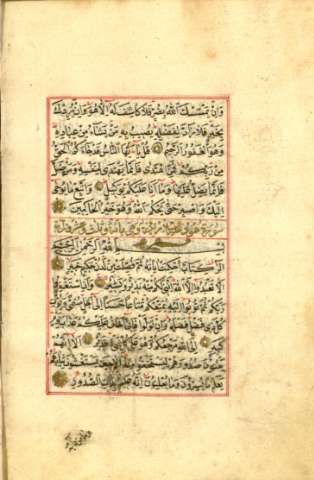 وَاِنْ يَمْسَسْكَ اللّٰهُ بِضُرٍّ فَلَا كَاشِفَ لَهُ اِلَّا هُوَ وَاِنْ يُرِدْكَ
بِخَيْرٍ فَلَا رَادَّ لِفَضْلِهِ يُصِيبُ بِهِ مَنْ يَشَاءُ مِنْ عِبَادِهِ
وَهُوَ الْغَفُورُ الرَّحِيمُ قُلْ يَا اَيُّهَا النَّاسُ قَدْ جَاءَكُمُ الْحَقُّ
مِنْ رَبِّكُمْ فَمَنِ اهْتَدٰى فَاِنَّمَا يَهْتَدِي لِنَفْسِهِ وَمَنْ ضَلَّ
فَاِنَّمَا يَضِلُّ عَلَيْهَا وَمَا اَنَا عَلَيْكُمْ بِوَكِيلٍ وَاتَّبِعْ مَا يُوحٰى
اِلَيْكَ وَاصْبِرْ حَتّٰى يَحْكُمَ اللّٰهُ وَهُوَ خَيْرُ الْحَاكِمِينَ
سورة هود عليه السلام
بِسْمِ اللّٰهِ الرَّحْمٰنِ الرَّحِيمِ
الٓرٰ كِتَابٌ اُحْكِمَتْ اٰيَاتُهُ ثُمَّ فُصِّلَتْ مِنْ لَدُنْ حَكِيمٍ خَبِيرٍ
اَلَّا تَعْبُدُوا اِلَّا اللّٰهَ اِنَّنِي لَكُمْ مِنْهُ نَذِيرٌ وَبَشِيرٌ وَاَنِ اسْتَغْفِرُوا
رَبَّكُمْ ثُمَّ تُوبُوا اِلَيْهِ يُمَتِّعْكُمْ مَتَاعًا حَسَنًا اِلٰى اَجَلٍ مُسَمًّى وَيُؤْتِ
كُلَّ ذِي فَضْلٍ فَضْلَهُ وَاِنْ تَوَلَّوْا فَاِنِّي اَخَافُ عَلَيْكُمْ عَذَابَ يَوْمٍ
كَبِيرٍ اِلَى اللّٰهِ مَرْجِعُكُمْ وَهُوَ عَلٰى كُلِّ شَيْءٍ قَدِيرٌ اَلَا اِنَّهُمْ
يَثْنُونَ صُدُورَهُمْ لِيَسْتَخْفُوا مِنْهُ اَلَا حِينَ يَسْتَغْشُونَ ثِيَابَهُمْ
يَعْلَمُ مَا يُسِرُّونَ وَمَا يُعْلِنُونَ اِنَّهُ عَلِيمٌ بِذَاتِ الصُّدُورِ